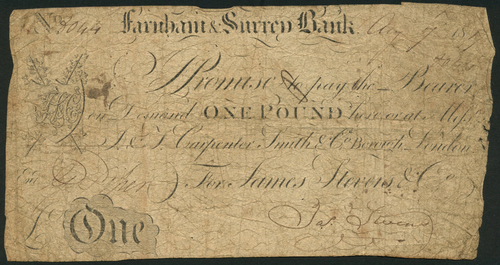 Farnham & Surrey Bank.
I Promise to pay the Bearer
on Demand ONE POUND here or at Mess.
Carpenter Smith & Co. Borough London
For James Stevens & Co.
Jas. Stevens
£ One